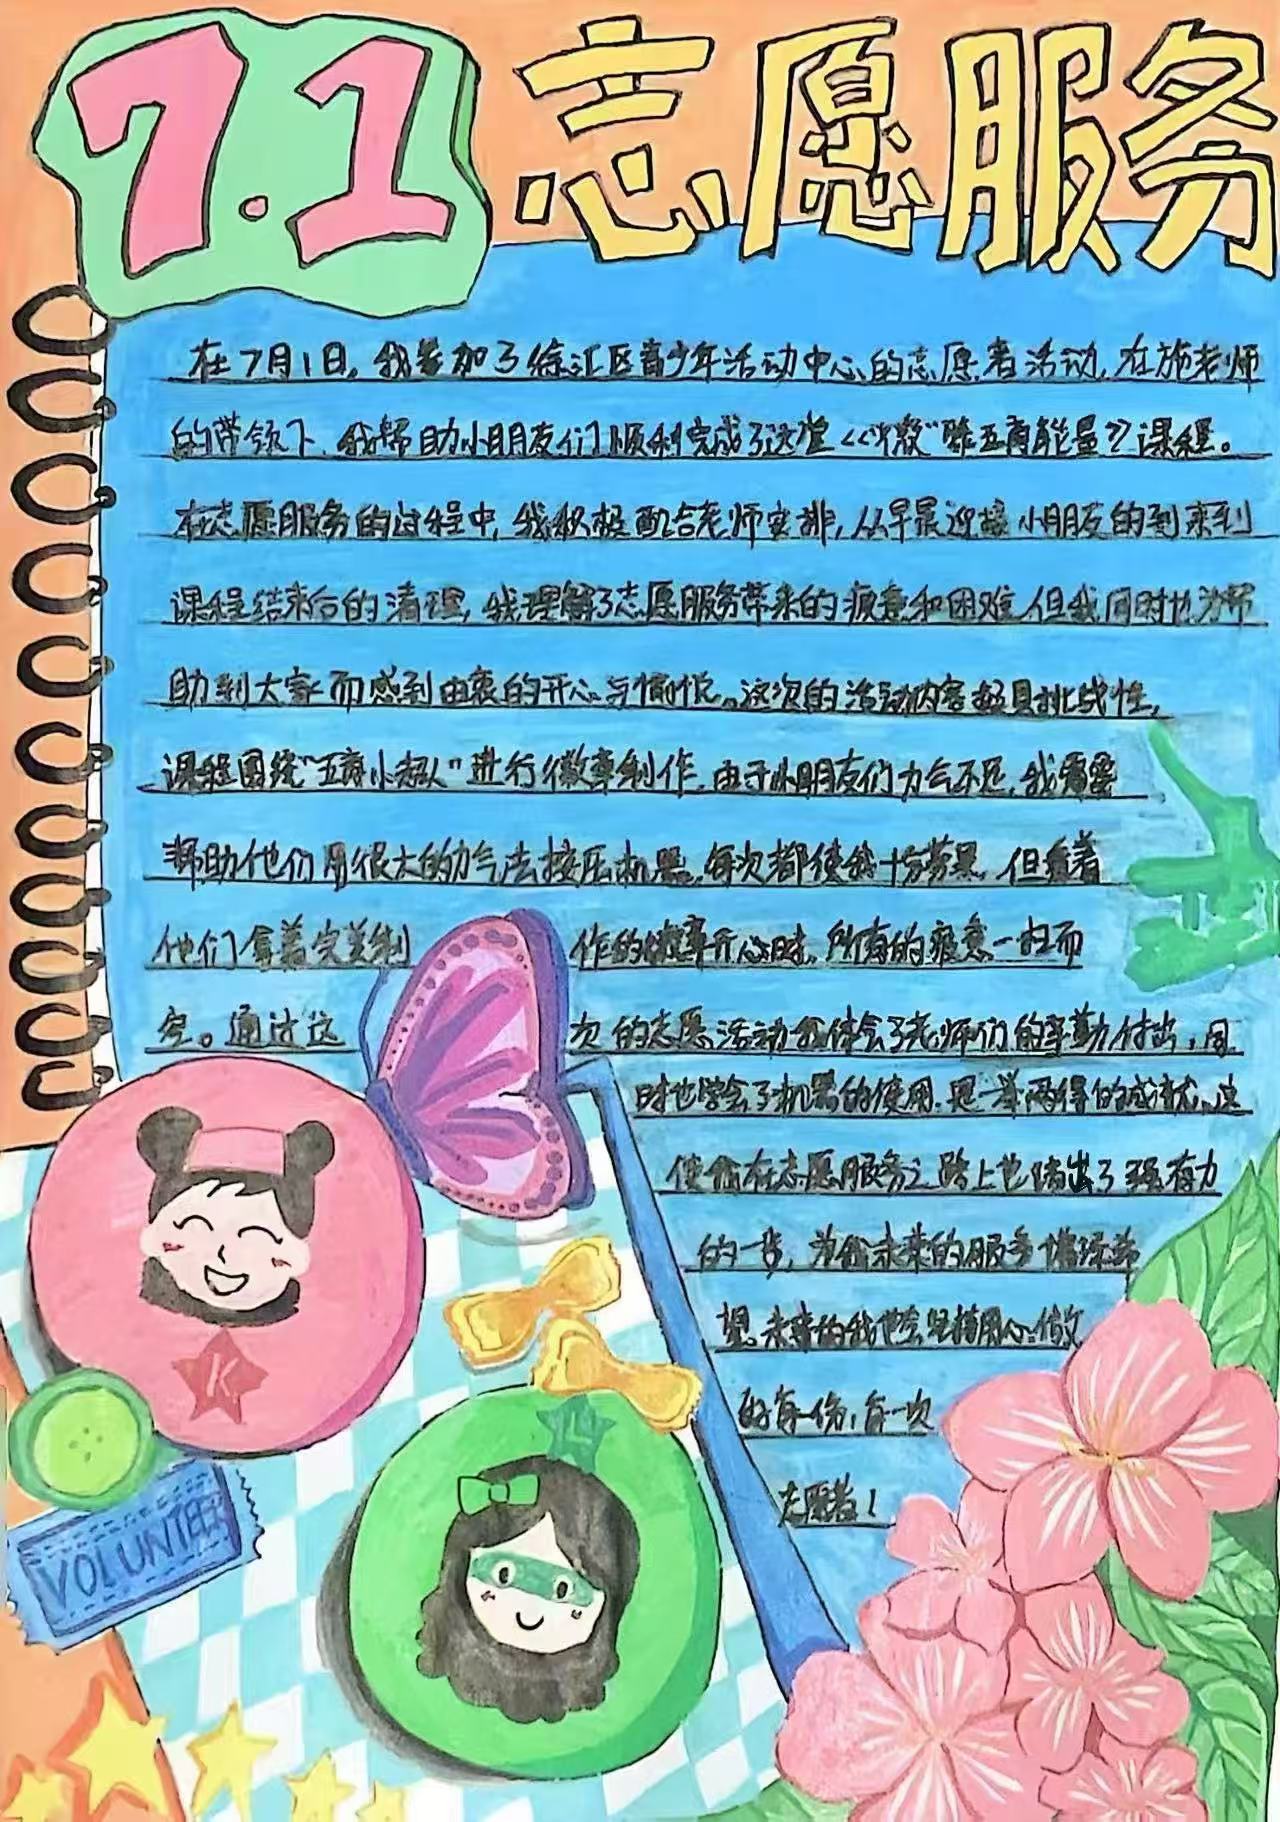 7.1 志愿服务
在7月1日，我参加了徐汇区青少年活动中心的志愿者活动，在施老师
的带领下，我帮助小朋友们顺利完成了这堂《“徽”聚五育能量》课程。
在志愿服务的过程中，我积极配合老师安排，从早晨迎接小朋友的到来到
课程结束后的清理，我理解了志愿服务带来的疲惫和困难，但我同时也为帮
助到大家而感到由衷的开心与愉悦。这次的活动内容极具挑战性，
课程围绕“五育小超人”进行徽章制作，由于小朋友们力气不足，我需要
帮助他们用很大的力气去按压机器，每次都使我十分劳累，但看着
他们拿着完美制作的徽章开心时，所有的疲惫一扫而
空。通过这次的志愿活动我体会了老师们的辛勤付出，同
时也学会了机器的使用，是一举两得的成就，这
使我在志愿服务之路上也踏出了强有力
的一步，为我未来的服务增添希
望。未来的我也会坚持用心做
好每一份，每一次
志愿者！
K
VOLUNTEER